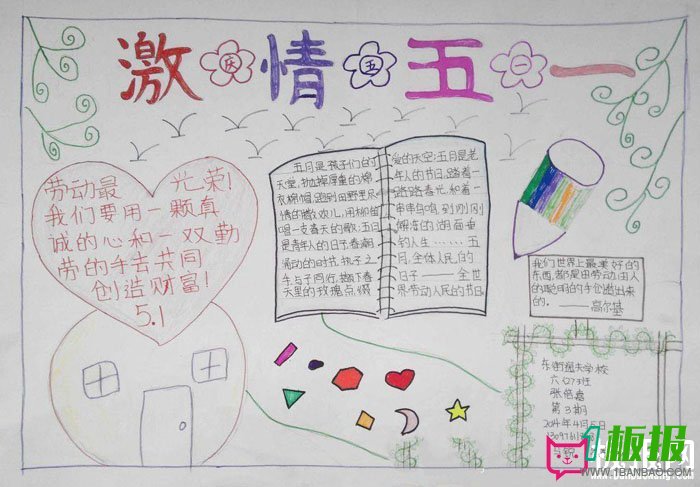 激情五一
庆五一
劳动最 光荣!
我们要用一颗真
诚的心和一双勤
劳的手去共同
创造财富!
5.1
五月是孩子们的
天堂,抛掉厚重的棉
衣棉帽,跑到田野里尽
情的撒欢儿,用柳笛
唱一支春天的歌;五月
是青年人的日子,春潮
涌动的时节,
天里的玫瑰点缀
爱的天空;五月是老
年人的节日,踏着一
路踏春光,和着一
串串鸟鸣,到刚刚
解冻的湖面垂
钓人生……五
月,全体人民的
日子——全世
界劳动人民的节日
我们世界上最美好的
东西,都是由劳动、由人
的聪明的手创造出来
的。——高尔基
东街逸夫学校
六(2)班
张倍嘉
第3期
2014年4月5日
1板报
WWW.1BANBAO.COM